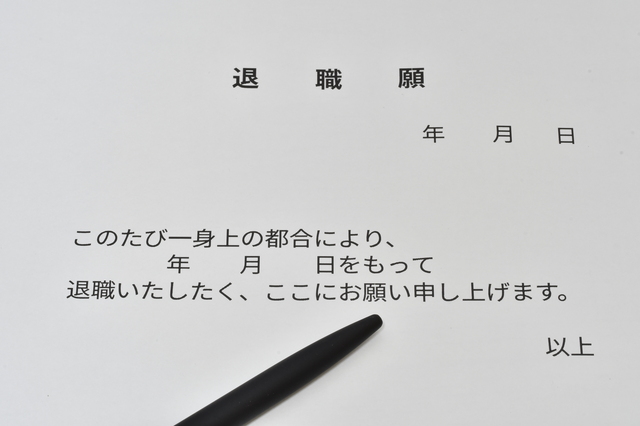 退　職　願
年　月　日
このたび一身上の都合により、
年　月　日をもって
退職いたしたく、ここにお願い申し上げます。
以上